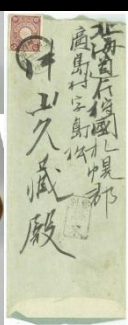 北海道石狩國札幌郡
廣島村字島松
井上久藏殿